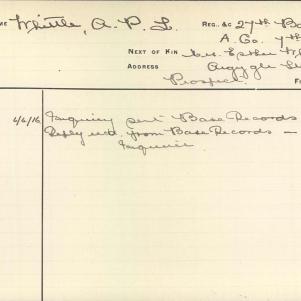 ME Whittle, A. P. L. REG. &C 27th B
A. Co. 7th
NEXT OF KIN Mrs. Esther Wh
ADDRESS Argyle St
Prospect. F
4/6/16 Inquiry sent Base Records
Reply recd. from Base Records —
Inquirie